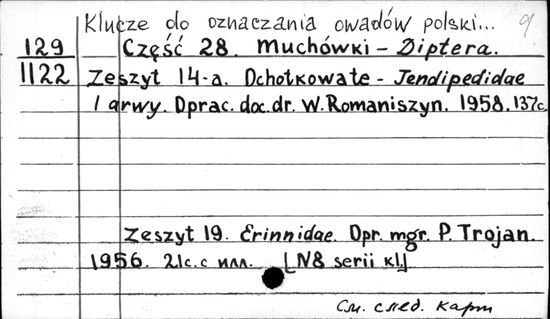 Klucze do oznaczania owadów polski... 9
129 Część 28. Muchówki – Diptera.
1122 Zeszyt 14-a. Ochotkowate - Jendipedidae
Larwy. Oprac. doc. dr. W. Romaniszyn. 1958. 137c.
Zeszyt 19. Erinnidae. Opr. mgr. P. Trojan.
1956. 21c. с илл. [N8 serii kl]
См. след. карт